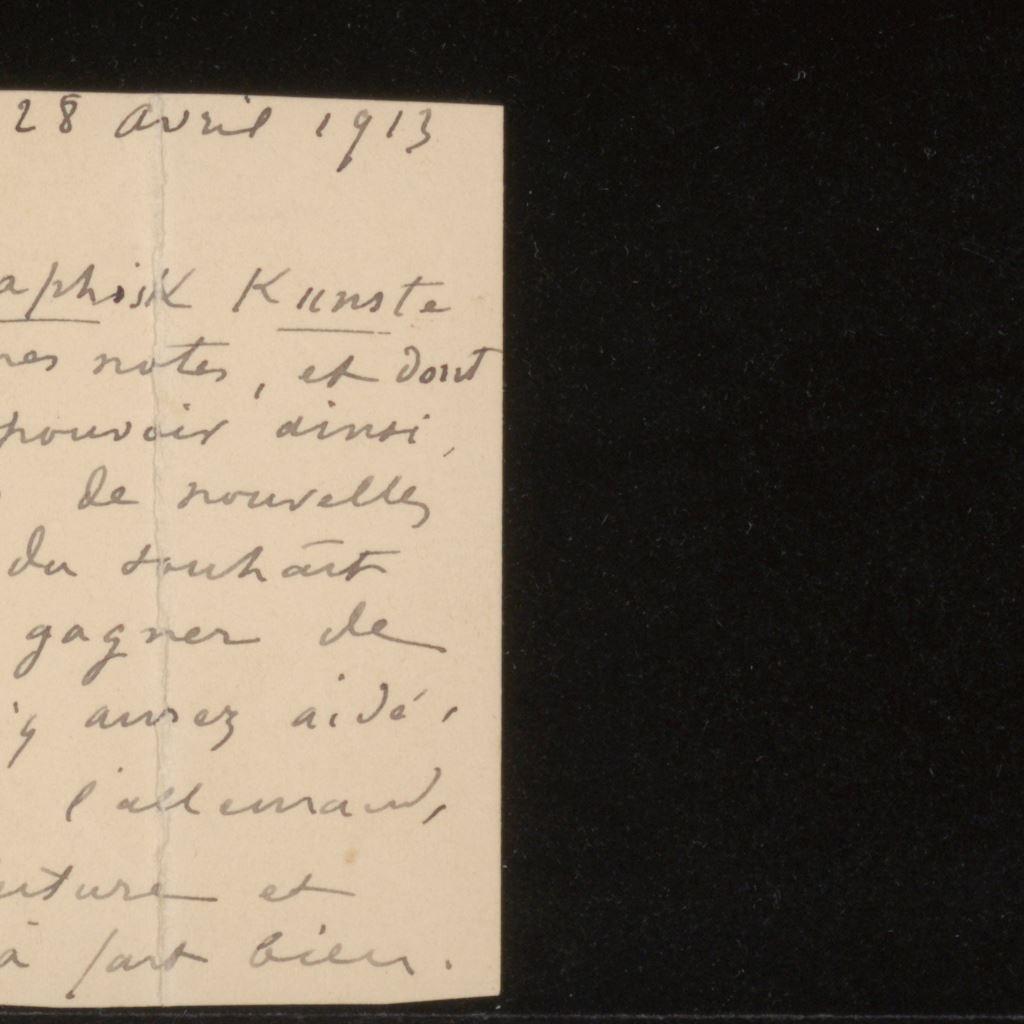 28 Avril 1913
aphisk Kunste
nes notes, et dont
pouvoir ainsi,
de nouvelles
du souhait
gagner de
'y aurez aidé,
l'allemand,
uture et
à fait bien.